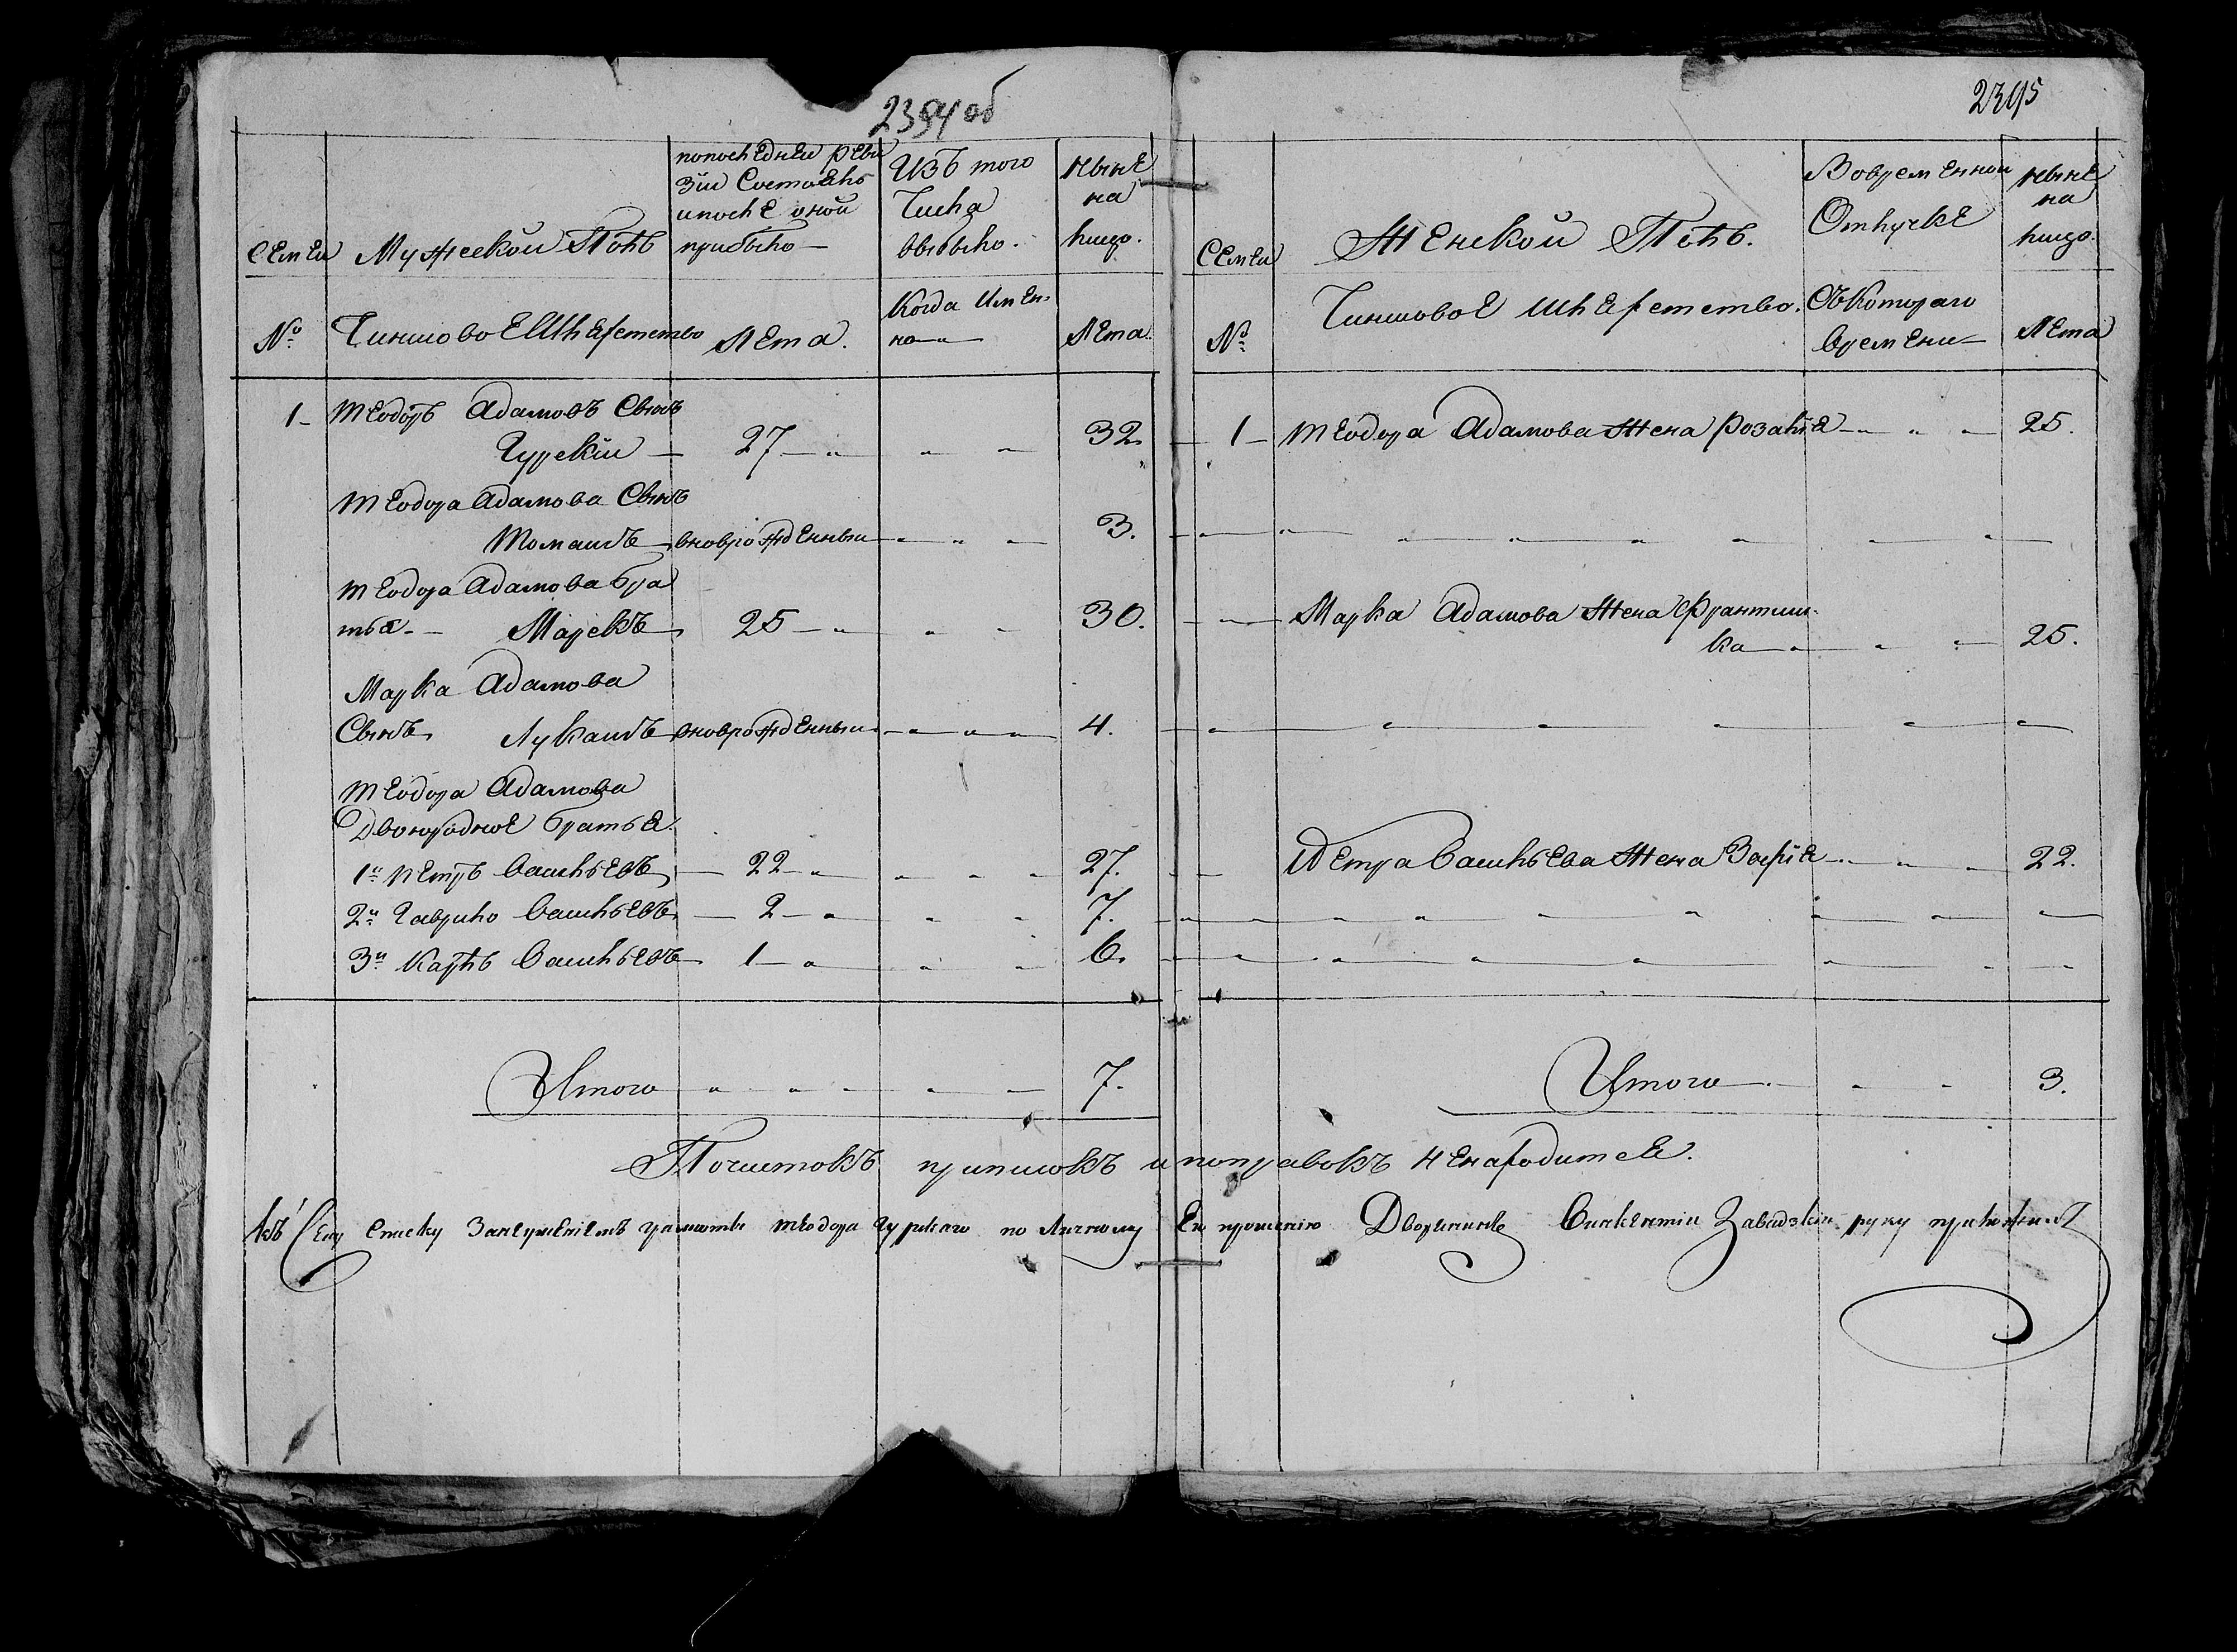 2394 об
Семьи
Мужеской Полъ
по последней реви
зіи Состояло
и после оной
прибыло —
Изъ того
Числа
выбыло.
ныне
на
лицо.
№
Чиншовое Шляхетство
Лета.
Когда Имен-
но
Лета
1 Теодоръ Адамовъ Сынъ
Гурскій 27 32
Теодора Адамова Сынъ
Томашъ вноврожденный 3.
Теодора Адамова бра
тья. Марекъ 25 30.
Марка Адамова
Сынъ Лукашъ вноврожденный 4.
Теодора Адамова
Двоюродные братья.
1й Петръ Васильевъ 22 27.
2й Гаврило Васильевъ 2 7.
3й Карлъ Васильевъ 1 6.
Итого 7.
2395
Семьи
Женской Полъ.
Вовременной
Отлучке
ныне
на
лицо.
№
Чиншовое Шляхетство.
Съ Котораго
времени
Лета
1 Теодора Адамова Жена Розалія 25.
Марка Адамова Жена Францыш-
ка 25.
Петра Васильева Жена Зофія 22.
Итого 3.
Почистокъ приписокъ и поправокъ ненаходится.
Къ Сему списку Занеуменіемъ грамоты Теодора Гурскаго по Личному Его прошенію Дворянинъ Викентій Завадзкій руку приложилъ